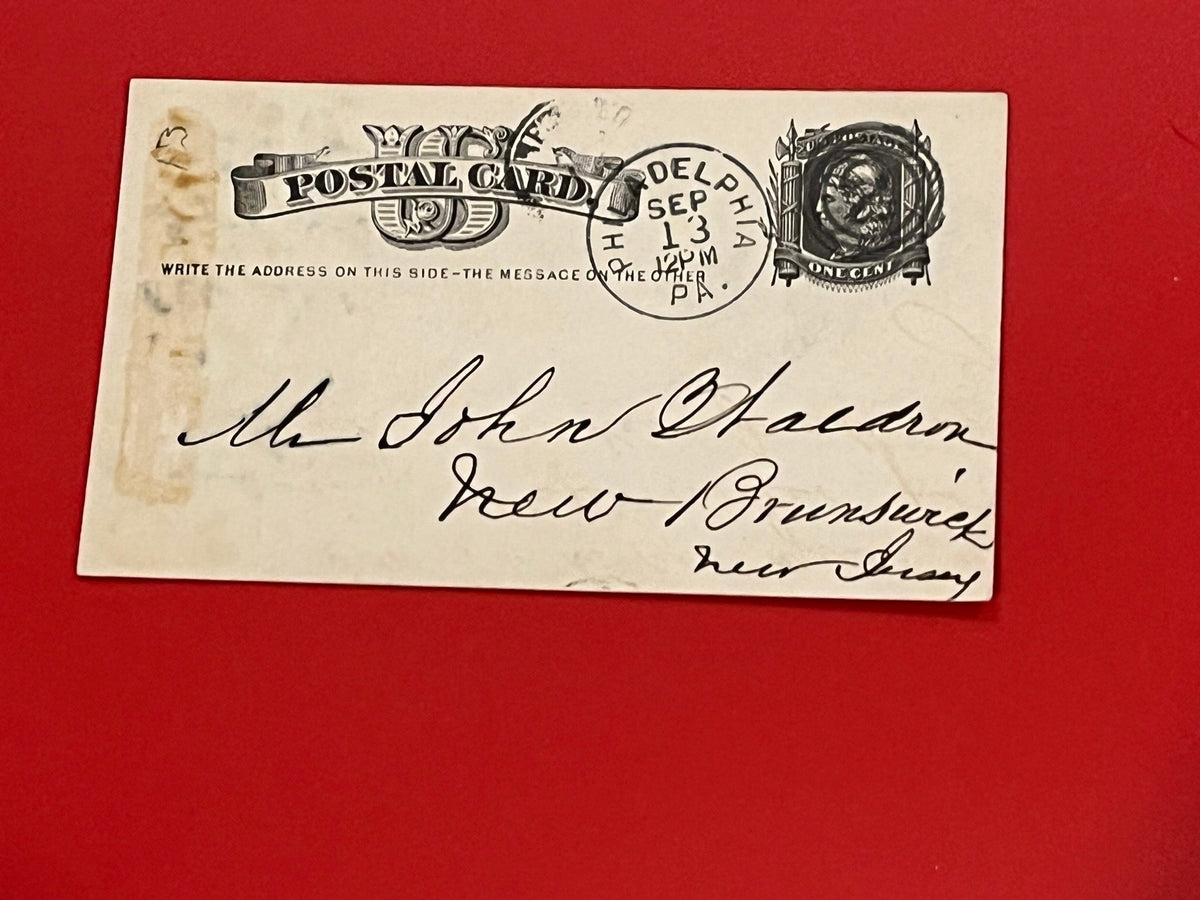 13
US
POSTAL CARD.
WRITE THE ADDRESS ON THIS SIDE-THE MESSAGE ON THE OTHER
PHILADELPHIA
SEP
13
12PM
PA.
U.S. POSTAGE
ONE CENT
Mr John Waldron
New Brunswick
New Jersey